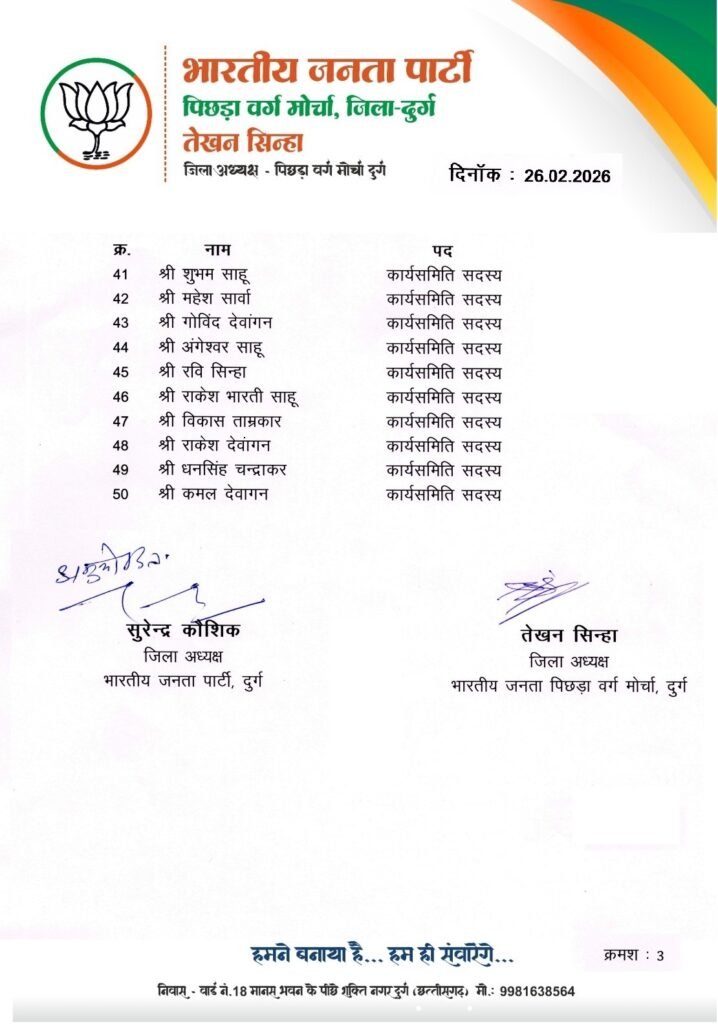 भारतीय जनता पार्टी
पिछड़ा वर्ग मोर्चा, जिला-दुर्ग
तेखन सिन्हा
जिला अध्यक्ष - पिछड़ा वर्ग मोर्चा दुर्ग
दिनॉक : 26.02.2026
क्र. नाम पद
41 श्री शुभम साहू कार्यसमिति सदस्य
42 श्री महेश सार्वा कार्यसमिति सदस्य
43 श्री गोविंद देवांगन कार्यसमिति सदस्य
44 श्री अंगेश्वर साहू कार्यसमिति सदस्य
45 श्री रवि सिन्हा कार्यसमिति सदस्य
46 श्री राकेश भारती साहू कार्यसमिति सदस्य
47 श्री विकास ताम्रकार कार्यसमिति सदस्य
48 श्री राकेश देवांगन कार्यसमिति सदस्य
49 श्री धनसिंह चन्द्राकर कार्यसमिति सदस्य
50 श्री कमल देवागन कार्यसमिति सदस्य
अनुमोदित
सुरेन्द्र कौशिक
जिला अध्यक्ष
भारतीय जनता पार्टी, दुर्ग
तेखन सिन्हा
जिला अध्यक्ष
भारतीय जनता पिछड़ा वर्ग मोर्चा, दुर्ग
हमने बनाया है... हम ही संवारेंगे...
क्रमश : 3
निवास - वार्ड नं.18 मानस भवन के पीछे शक्ति नगर दुर्ग (छत्तीसगढ़) मो.: 9981638564